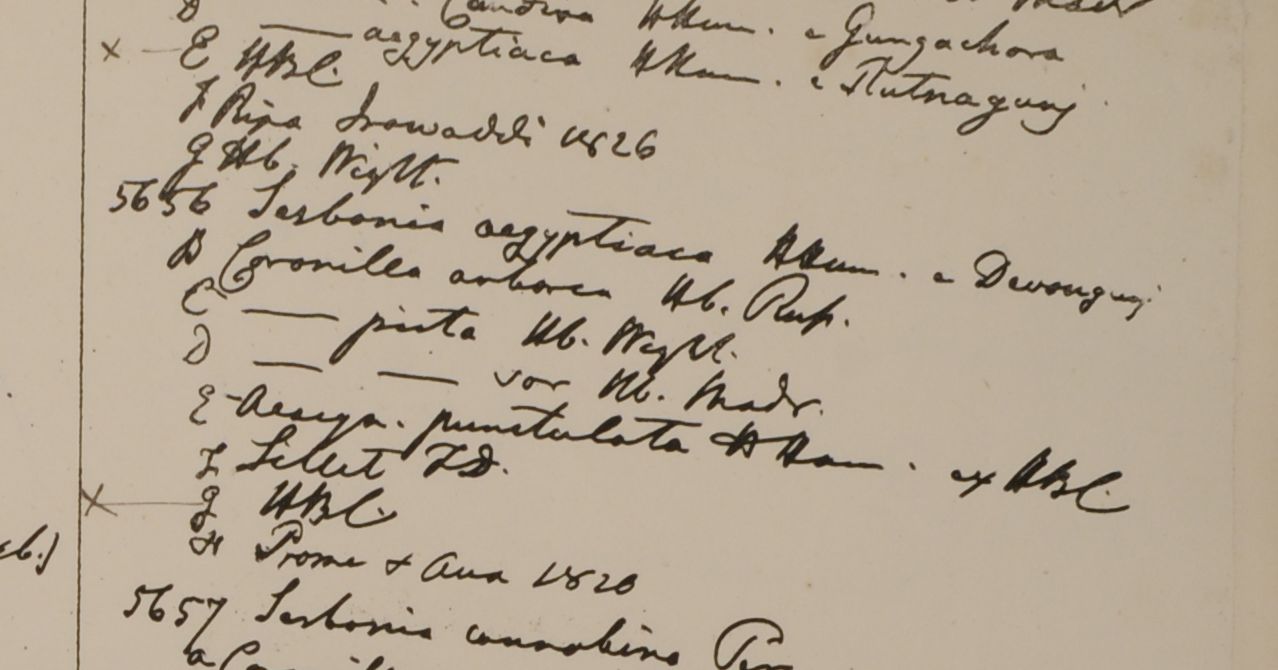 D ——— Candina HHam. e Gungachora
E HBC. ——— aegyptiaca HHam. e
F Ripa Irowaddi 1826
G Hb. Wight.
5656 Sesbania aegyptiaca HHam. e
B Coronilla arborea Hb. Rup.
C ——— picta Hb. Wight.
D ——— ——— var Hb. Madr.
E punctulata HHam. ex HBC
F Sillet FD.
G HBC
H Prome & Ava 1826
5657 Sesbania cannabina
a
eb.)